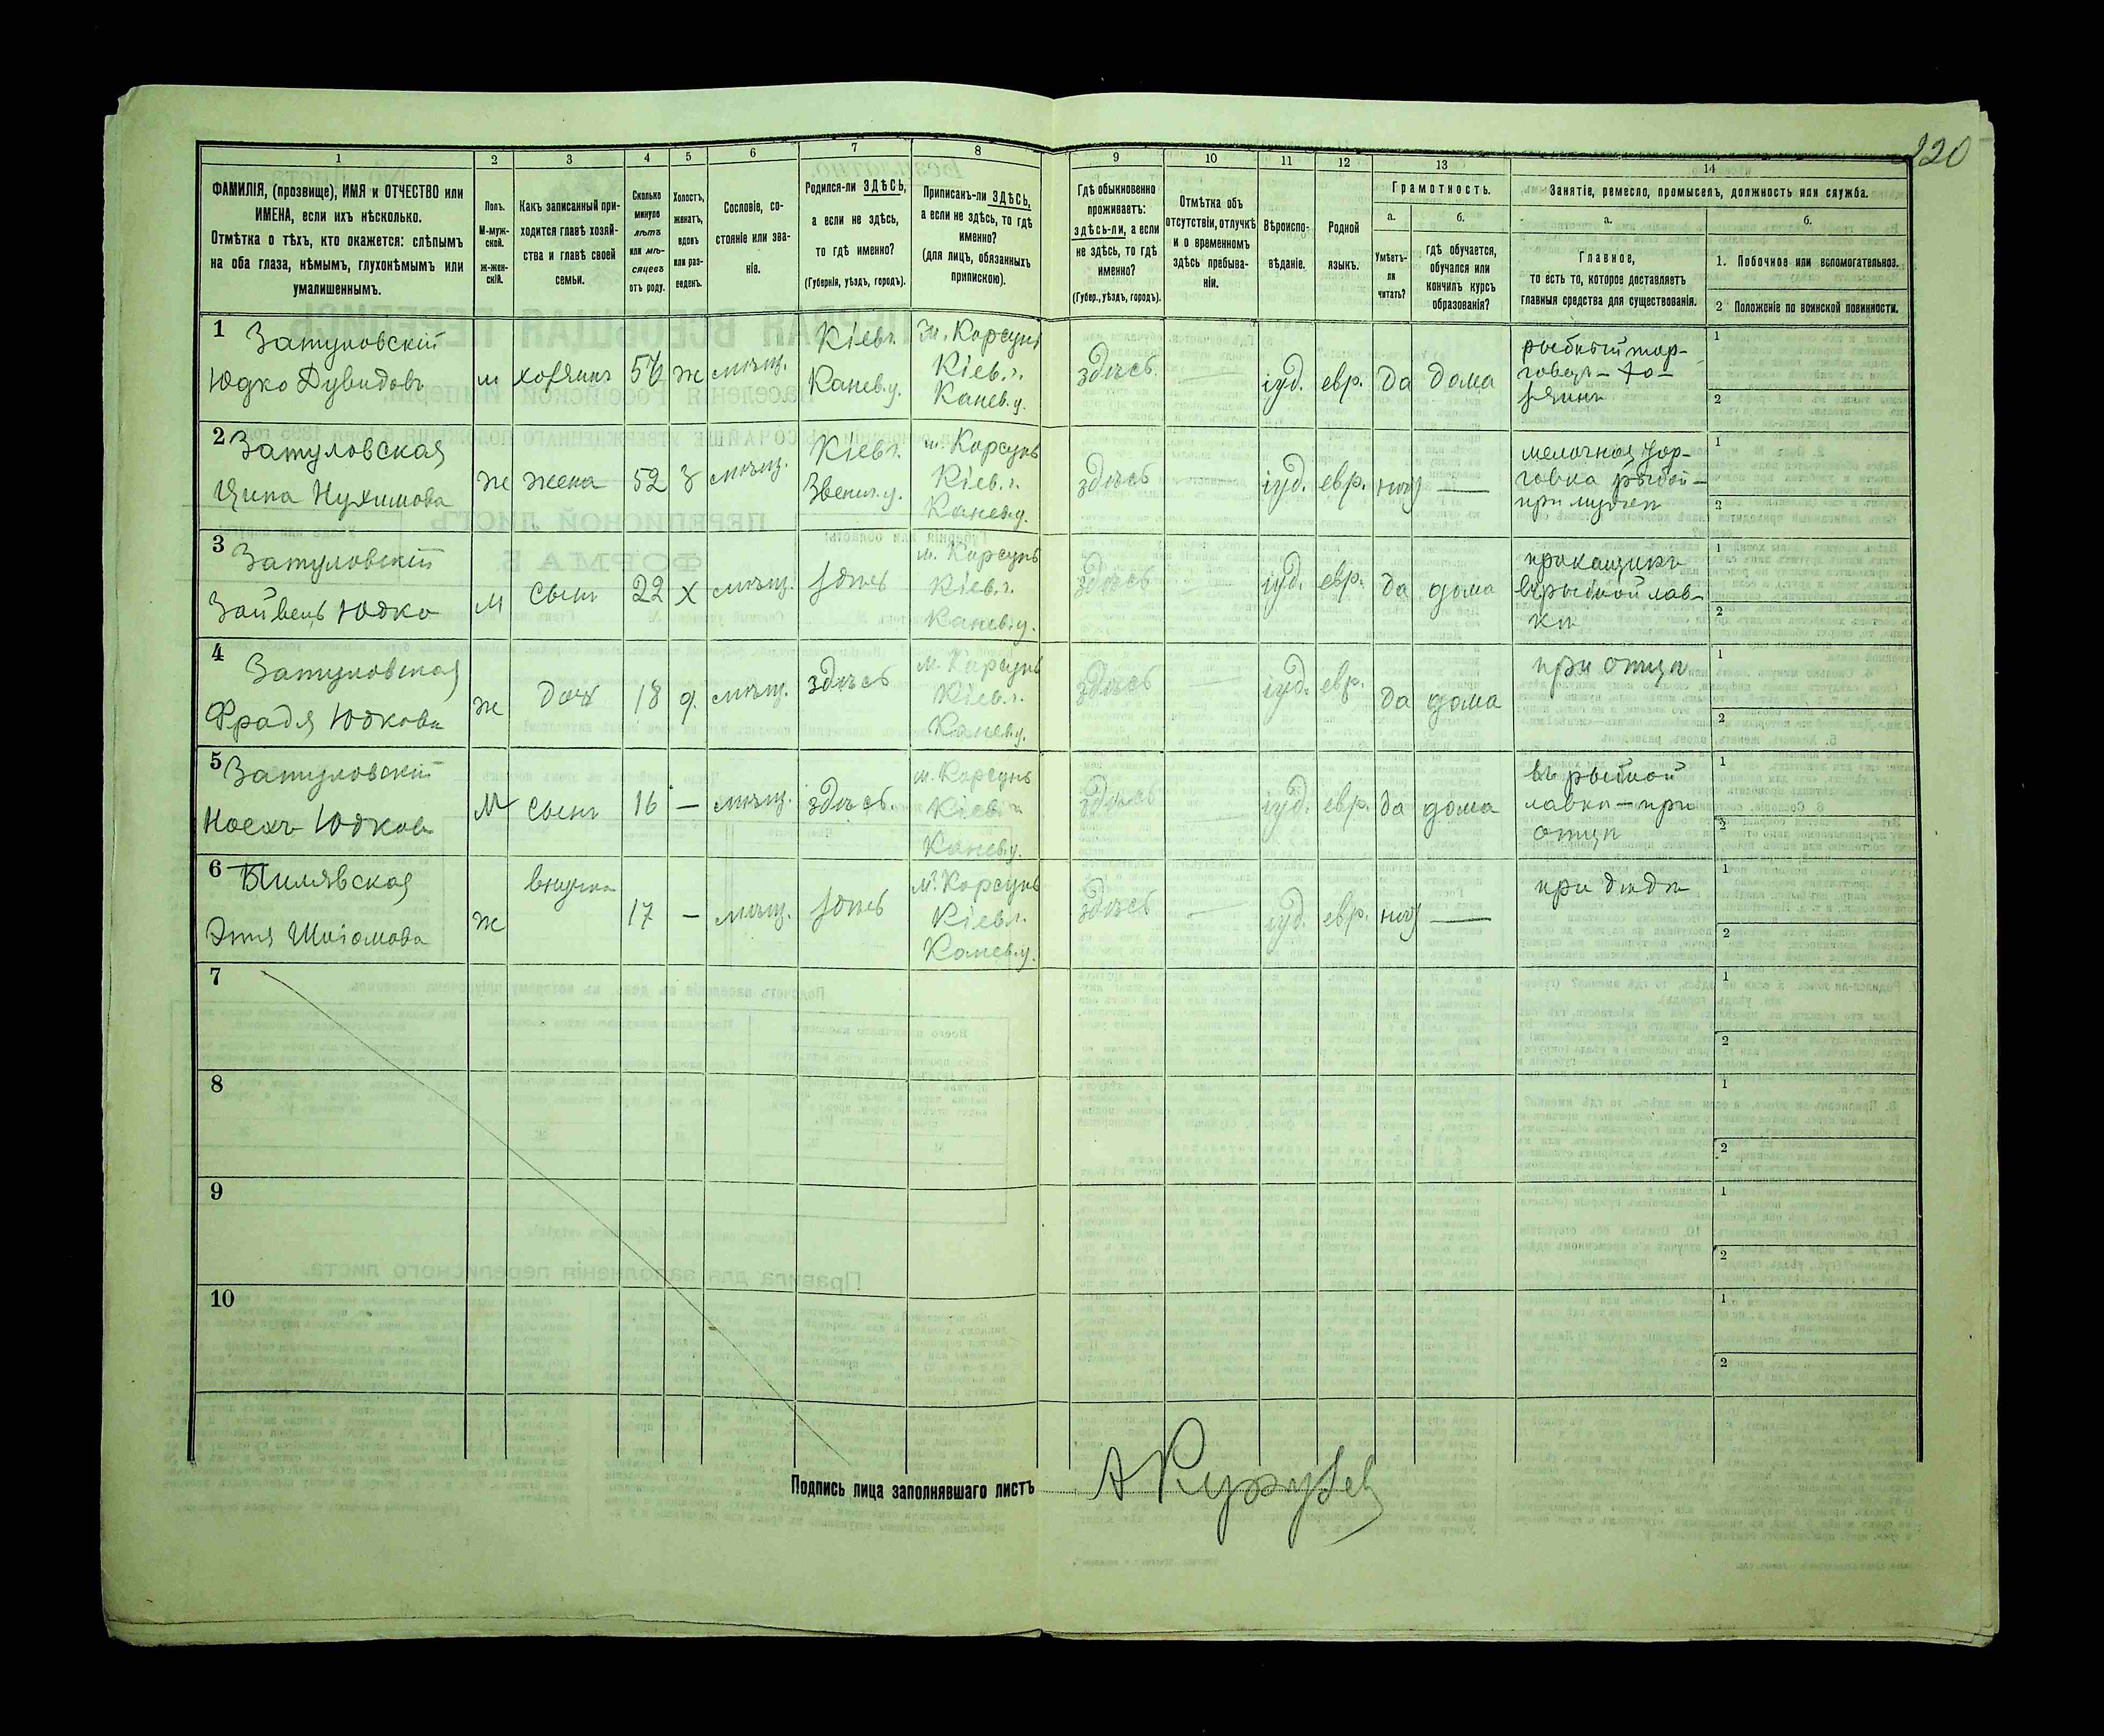 220
1
2
3
4
5
6
7
8
9
10
11
12
13
14
ФАМИЛІЯ, (прозвище), ИМЯ и ОТЧЕСТВО или
ИМЕНА, если ихъ нѣсколько.
Отмѣтка о тѣхъ, кто окажется: слѣпымъ
на оба глаза, нѣмымъ, глухонѣмымъ или
умалишеннымъ.
Полъ.
М-муж-
ской.
Ж-жен-
скій.
Какъ записанный при-
ходится главѣ хозяй-
ства и главѣ своей
семьи.
Сколько
минуло
лѣтъ
или мѣ-
сяцевъ
отъ роду.
Холостъ,
женатъ,
вдовъ
или раз-
веденъ.
Сословіе, со-
стояніе или зва-
ніе.
Родился-ли ЗДѢСЬ,
а если не здѣсь,
то гдѣ именно?
(Губернія, уѣздъ, городъ).
Приписанъ-ли ЗДѢСЬ,
а если не здѣсь, то гдѣ
именно?
(для лицъ, обязанныхъ
припискою).
Гдѣ обыкновенно
проживаетъ:
здѣсь-ли, а если
не здѣсь, то гдѣ
именно?
(Губер., уѣздъ, городъ).
Отмѣтка объ
отсутствіи, отлучкѣ
и о временномъ
здѣсь пребыва-
ніи.
Вѣроиспо-
вѣданіе.
Родной
языкъ.
Грамотность.
а.
Умѣетъ-
ли
читать?
б.
гдѣ обучается,
обучался или
кончилъ курсъ
образованія?
Занятіе, ремесло, промыселъ, должность или служба.
а.
Главное,
то есть то, которое доставляетъ
главныя средства для существованія.
б.
1. Побочное или вспомогательное.
2 Положеніе по воинской повинности.
1 Затуловскій
Юдко Дувидовъ
м
хозяинъ
56
ж
мѣщ.
Кіев г.
Канев. у.
м. Корсунь
Кіев. г.
Канев. у.
здѣсь
—
іуд.
евр.
да
дома
рыбный тор-
говецъ - хо-
зяинъ
1
2
2 Затуловская
Ципа Нухимова
ж
жена
52
з
мѣщ.
Кіев г.
Звениг. у.
м. Корсунь
Кіев. г.
Канев. у.
здѣсь
—
іуд.
евр.
нѣтъ
—
мелочная тор-
говка рыбой -
при мужѣ
1
2
3 Затуловскій
Зайвель Юдко
м
сынъ
22
х
мѣщ.
здѣсь
м. Корсунь
Кіев. г.
Канев. у.
здѣсь
—
іуд.
евр.
да
дома
прикащикъ
въ рыбной лав-
кѣ
1
2
4 Затуловская
Фрадя Юдкова
ж
доч
18
д.
мѣщ.
здѣсь
м. Корсунь
Кіев. г.
Канев. у.
здѣсь
—
іуд.
евр.
да
дома
при отцѣ
1
2
5 Затуловскій
Ноехъ Юдков
м
сынъ
16
—
мѣщ.
здѣсь.
м. Корсунь
Кіев. г.
Канев. у.
здѣсь
—
іуд.
евр.
да
дома
въ рыбной
лавкѣ - при
отцѣ
1
2
6
ж
внучка
17
—
мѣщ.
здѣсь
м. Корсунь
Кіев. г.
Канев. у.
здѣсь
—
іуд.
евр.
нѣтъ
—
при дѣдѣ
1
2
7
1
2
8
1
2
9
1
2
10
1
2
Подпись лица заполнявшаго листъ